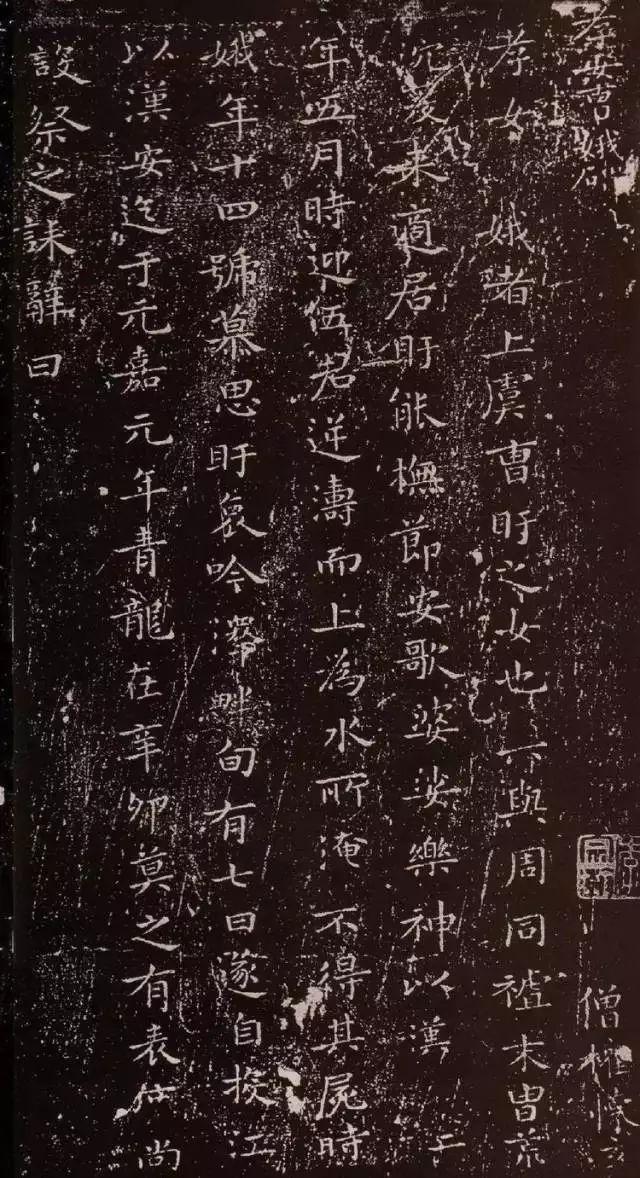 孝女曹娥碑
僧權
孝女 娥者上虞曹盱之女也 與周同祖末胄荒
沉爰来適居盱能撫節安歌婆娑樂神以漢 二
年五月時迎伍君逆濤而上為水所淹不得其屍時
娥年十四號慕思盱哀吟澤畔旬有七日遂自投江
以漢安迄于元嘉元年青龍在辛卯莫之有表度尚
設祭之誄辭曰